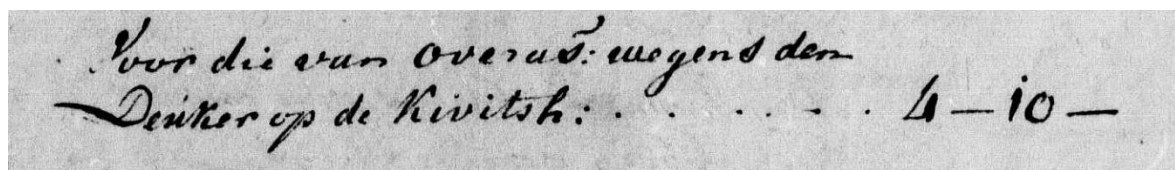 Voor die van overas: wegens den
Deuker op de Kivitsh: . . . . . . 4 — 10 —